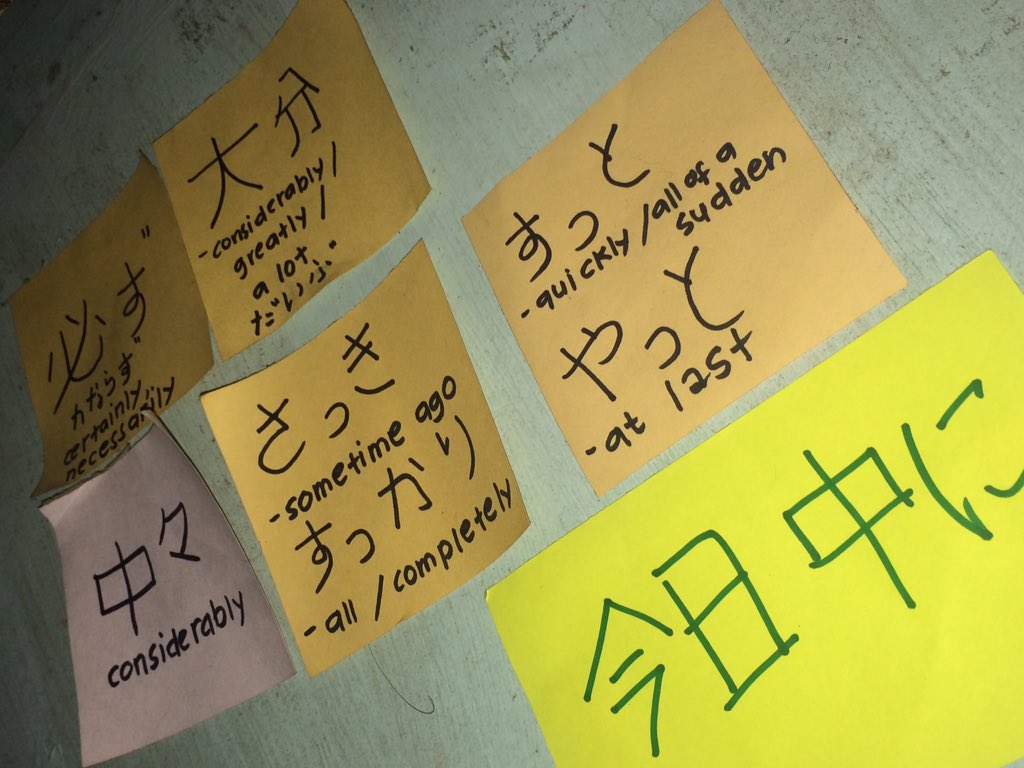 必ず
かならず
certainly/
necessarily
大分
-considerably/
greatly/
a lot
だいぶ
すっと
-quickly/all of a
sudden
やっと
-at last
さっき
-sometime ago
すっかり
-all/completely
中々
considerably
今日中に